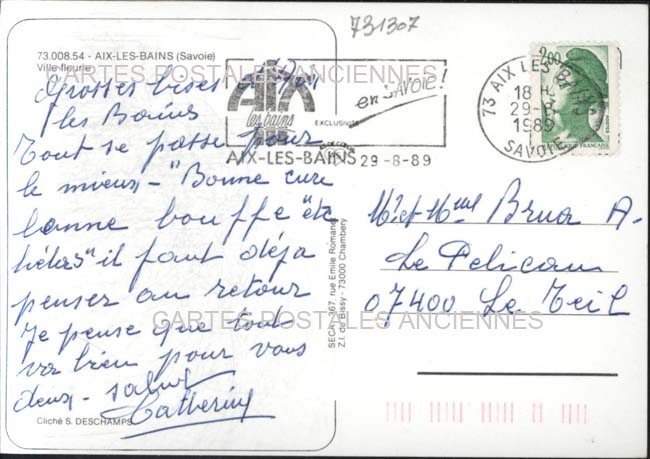 731307
73.008.54 - AIX-LES-BAINS (Savoie)
Ville fleurie
CARTES POSTALES ANCIENNES
Grosses bises d'Aix
les Bains
Tout se passe pour
le mieux - "Bonne cure
bonne bouffe" etc
hélas" il faut déjà
penser au retour
Je pense que tout
va bien pour vous
deux - salut
Catherine
Cliché S. DESCHAMPS
AIX
les bains
EXCLUSIVITÉ
en SAVOIE!
AIX-LES-BAINS 29-8-89
73 AIX LES BAINS
18 H
29-8
1989
SAVOIE
2,00
RÉPUBLIQUE FRANÇAISE
SECA - 367, rue Emile Romanet
Z.I. de Bissy - 73000 Chambery
Mr et Mme Brua A.
Le Pelican
07400 Le Teil
CARTES POSTALES ANCIENNES